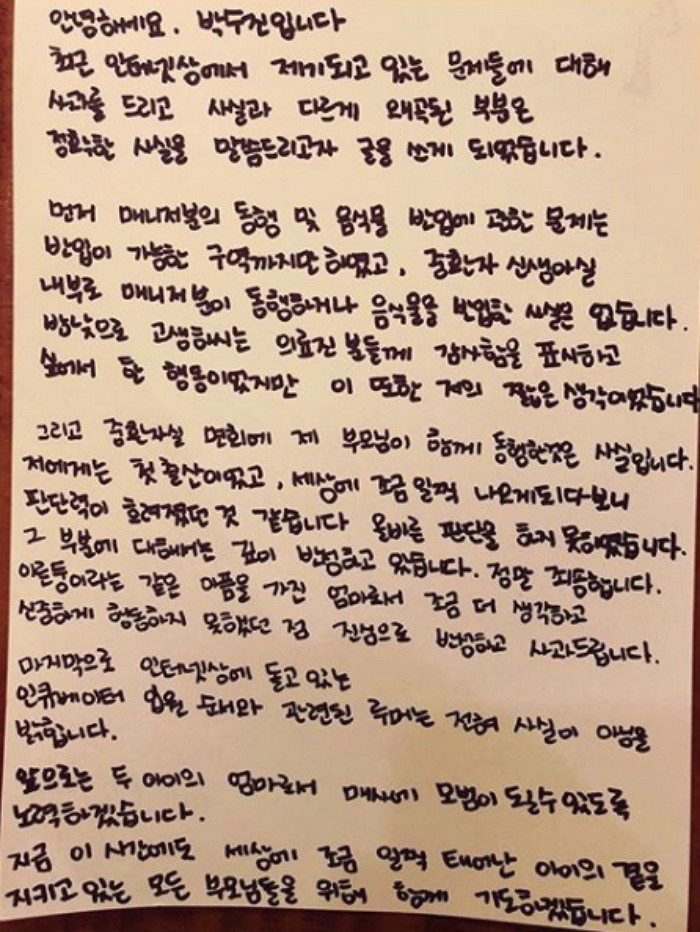 안녕하세요. 박수진입니다
최근 인터넷상에서 제기되고 있는 문제들에 대해
사과를 드리고 사실과 다르게 왜곡된 부분은
정확한 사실을 말씀드리고자 글을 쓰게 되었습니다.
먼저 매니저분의 동행 및 음식물 반입에 관한 문제는
반입이 가능한 구역까지만 하였고, 중환자 신생아실
내부로 매니저 분이 동행하거나 음식물을 반입한 사실은 없습니다.
밤낮으로 고생하시는 의료진 분들께 감사함을 표시하고
싶어서 한 행동이었지만 이 또한 저의 짧은 생각이었습니다
그리고 중환자실 면회에 제 부모님이 함께 동행한것은 사실입니다.
저에게는 첫 출산이었고, 세상에 조금 일찍 나오게되다보니
판단력이 흐려졌던 것 같습니다 올바른 판단을 하지 못하였습니다.
그 부분에 대해서는 깊이 반성하고 있습니다. 정말 죄송합니다.
이른둥이라는 같은 아픔을 가진 엄마로서 조금 더 생각하고
신중하게 행동하지 못했던 점 진심으로 반성하고 사과드립니다.
마지막으로 인터넷상에 돌고 있는
인큐베이터 입원 순서와 관련된 루머는 전혀 사실이 아님을
밝힙니다.
앞으로는 두 아이의 엄마로서 매사에 모범이 되릴수 있도록
노력하겠습니다.
지금 이 시간에도 세상에 조금 일찍 태어난 아이의 곁을
지키고 있는 모든 부모님들을 위해 함께 기도하겠습니다.